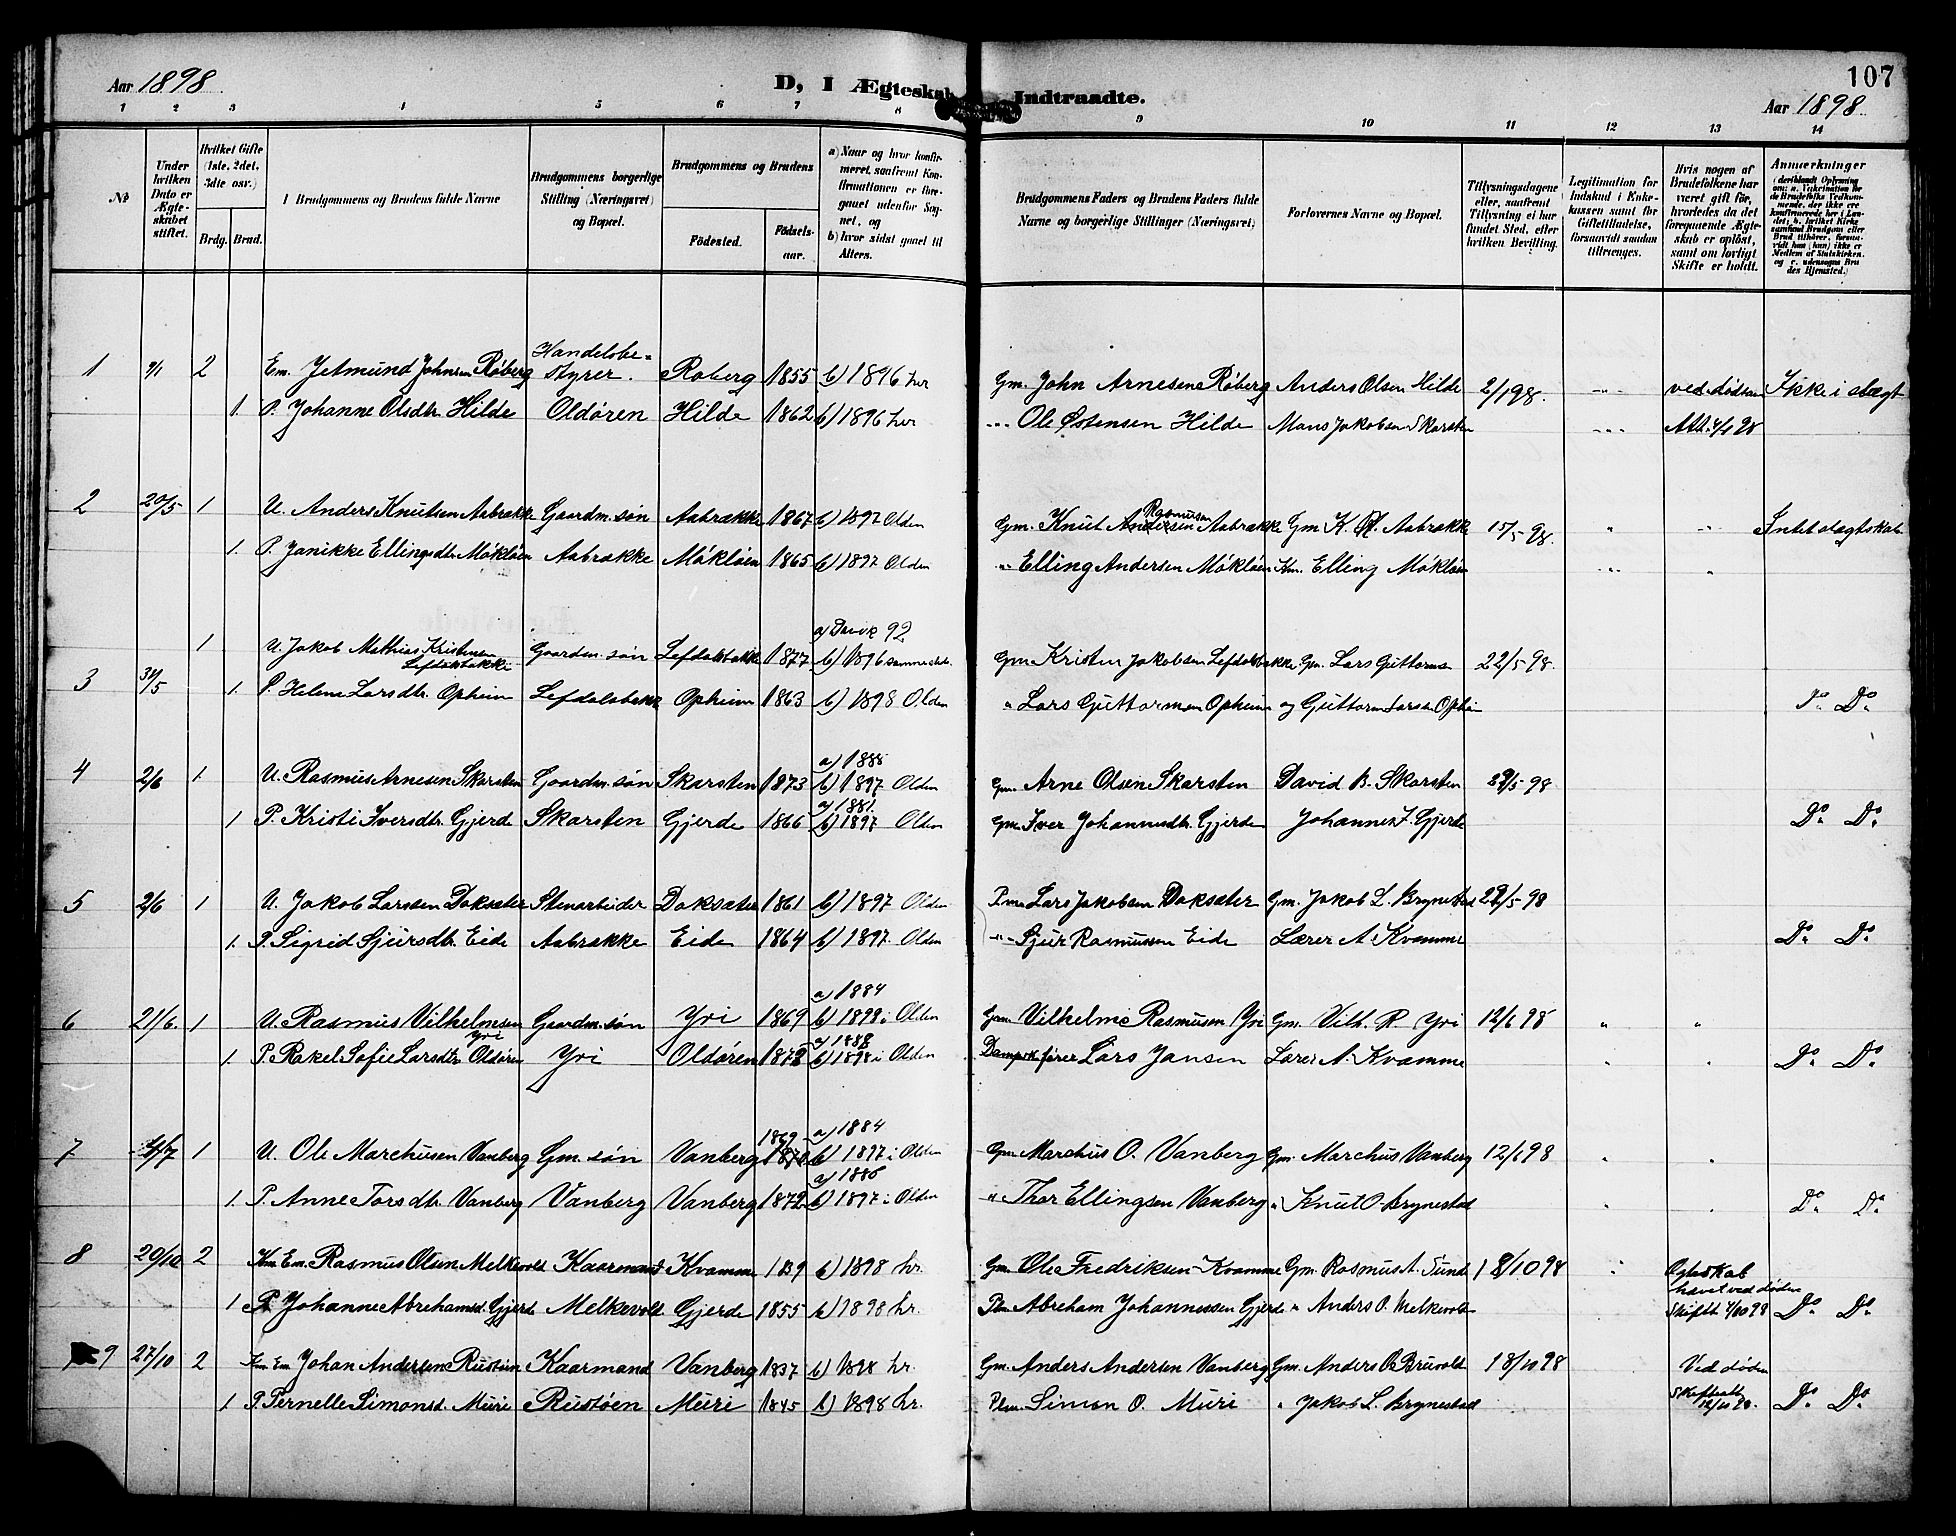 107
Aar 1898. D, I Ægteskab Indtraadte. Aar 1898.
1 2 3 4 5 6 7 8 9 10 11 12 13 14
№
Under hvilken Dato er Ægteskabet stiftet.
Hvilket Gifte (1ste, 2det, 3dte osv.)
Brdg. Brud.
Brudgommens og Brudens fulde Navne
Brudgommens borgerlige Stilling (Næringsvei) og Bopæl.
Brudgommens og Brudens
Fødested. Fødsels-aar.
a) Naar og hvor konfirmeret, saafremt Konfirmationen er foregaaet udenfor Sognet, og
b) hvor sidst gaaet til Alters.
Brudgommens Faders og Brudens Faders fulde Navne og borgerlige Stillinger (Næringsvei)
Forlovernes Navne og Bopæl.
Tillysningsdagene eller, saafremt Tillysning ei har fundet Sted, efter hvilken Bevilling.
Legitimation for Indskud i Enkekassen samt for Giftetilladelse, forsaavidt saadan tiltrænges.
Hvis nogen af Brudefolkene har været gift før, hvorledes da det foregaaende Ægteskab er opløst, samt om lovligt Skifte er holdt.
Anmærkninger
1 2 Em. Jetmund Johnsen Røberg Handelsbestyrer. Roberg 1855 b) 1896 her Gm. John Arnesen Røberg Anders Olsen Hilde 2/1 98. ved døden Ikke i slægt
1. P. Johanne Olsdtr. Hilde Oldøren Hilde 1862 b) 1896 her " Ole Østensen Hilde Mons Jakobsen Skarsten
2 20/5 1 U. Anders Knutsen Aabrække Gaardm. søn Aabrække 1867 b) 1897 Olden Gm. Knut Rasmusen Aabrække Gm K. R. Aabrække 15/5 98. " " Intet slægtskab
1. P. Janikke Ellingsdtr. Mókløen Aabrække Mókløen 1865 b) 1897 Olden " Elling Andersen Mókløen Km. Elling Mókløen
3 1 U. Jakob Mathias Kristensen Lefdalsbakke Gaardm. søn Lefdalsbakk 1877 a) Davik 92. b) 1896 sammesteds Gm Kristen Jakobsen Lefdalsbakke. Gm. Lars Guttormsen 22/5 98.
1. P. Helene Larsdtr. Opheim Lefdalsbakk Opheim 1863 b) 1898 Olden " Lars Guttormsen Opheim og Guttorm Larsen Opheim Do Do
4 2/6 1. U. Rasmus Arnesen Skarsten Gaardm. søn Skarsten 1873 a) 1888 b) 1897 Olden Gm Arne Olsen Skarsten David B. Skarsten 29/5 98
1 P. Kristi Iversdtr. Gjerde Skarsten Gjerde 1866 a) 1881. b) 1897 Olden Gm Iver Johannesdtr. Gjerde Johannes I. Gjerde Do Do
5 2/6 1 U. Jakob Larsen Doksæter Stenarbeider Doksæter 1861 b) 1897 Olden Pm Lars Jakobsen Doksæter Gm. Jakob L. Brynestad 29/5 98
1. P. Sigrid Sjursdtr. Eide Aabrække Eide 1864 b) 1897 Olden " Sjur Rasmussen Eide Lærer A. Kvamme Do Do
6 21/6. 1 U. Rasmus Vilhelmsen Yri Gaardm. søn Yri 1869 a) 1884 b) 1898 i Olden Gm Vilhelme Rasmusen Yri Gm. Vilh. R. Yri 12/6 98 " "
1. P. Rakel Sofie Larsdtr. Oldøren Yri Oldøren 1872 a) 1888 b) 1898 i Olden Dampskfører Lars Jansen Lærer A. Kvamme Do Do
7 4/7 1 U. Ole Marchusen Vanberg Gm. søn Vanberg 1869 a) 1884 b) 1897 i Olden Gm Marchus O. Vanberg Gm. Marchus Vanberg 12/6 98 " "
1. P. Anne Torsdtr. Vanberg Vanberg Vanberg 1872 a) 1886 b) 1897 i Olden " Thor Ellingsen Vanberg " Knut O. Brynestad Do Do
8 20/10 2 Km. Em. Rasmus Olsen Melkevold Kaarmand Kvamme 1839 b) 1898 hr. Gm Ole Fredriksen Kvamme Gm. Rasmus A. Sunde 18/10 98 Ægteskab hævet ved døden
1 P. Johanne Abrehamsd. Gjerde Melkevold Gjerde 1855 b) 1898 hr. Plm Abreham Johannessen Gjerde " Anders O. Melkevold Skiftatt 7/10 98 Do Do
9 27/10 2 Km Em Johan Andersen Rustøen Kaarmand Vanberg 1837 b) 1898 hr. Gm. Anders Andersen Vanberg Gm. Anders O. Bruvold 18/10 98 Ved døden
1. P. Pernelle Simonsd. Muri Rustøen Muri 1845 b) 1898 hr. Plm Simon O. Muri " Jakob L. Brynestad Skiftatt 12/10 98. Do Do